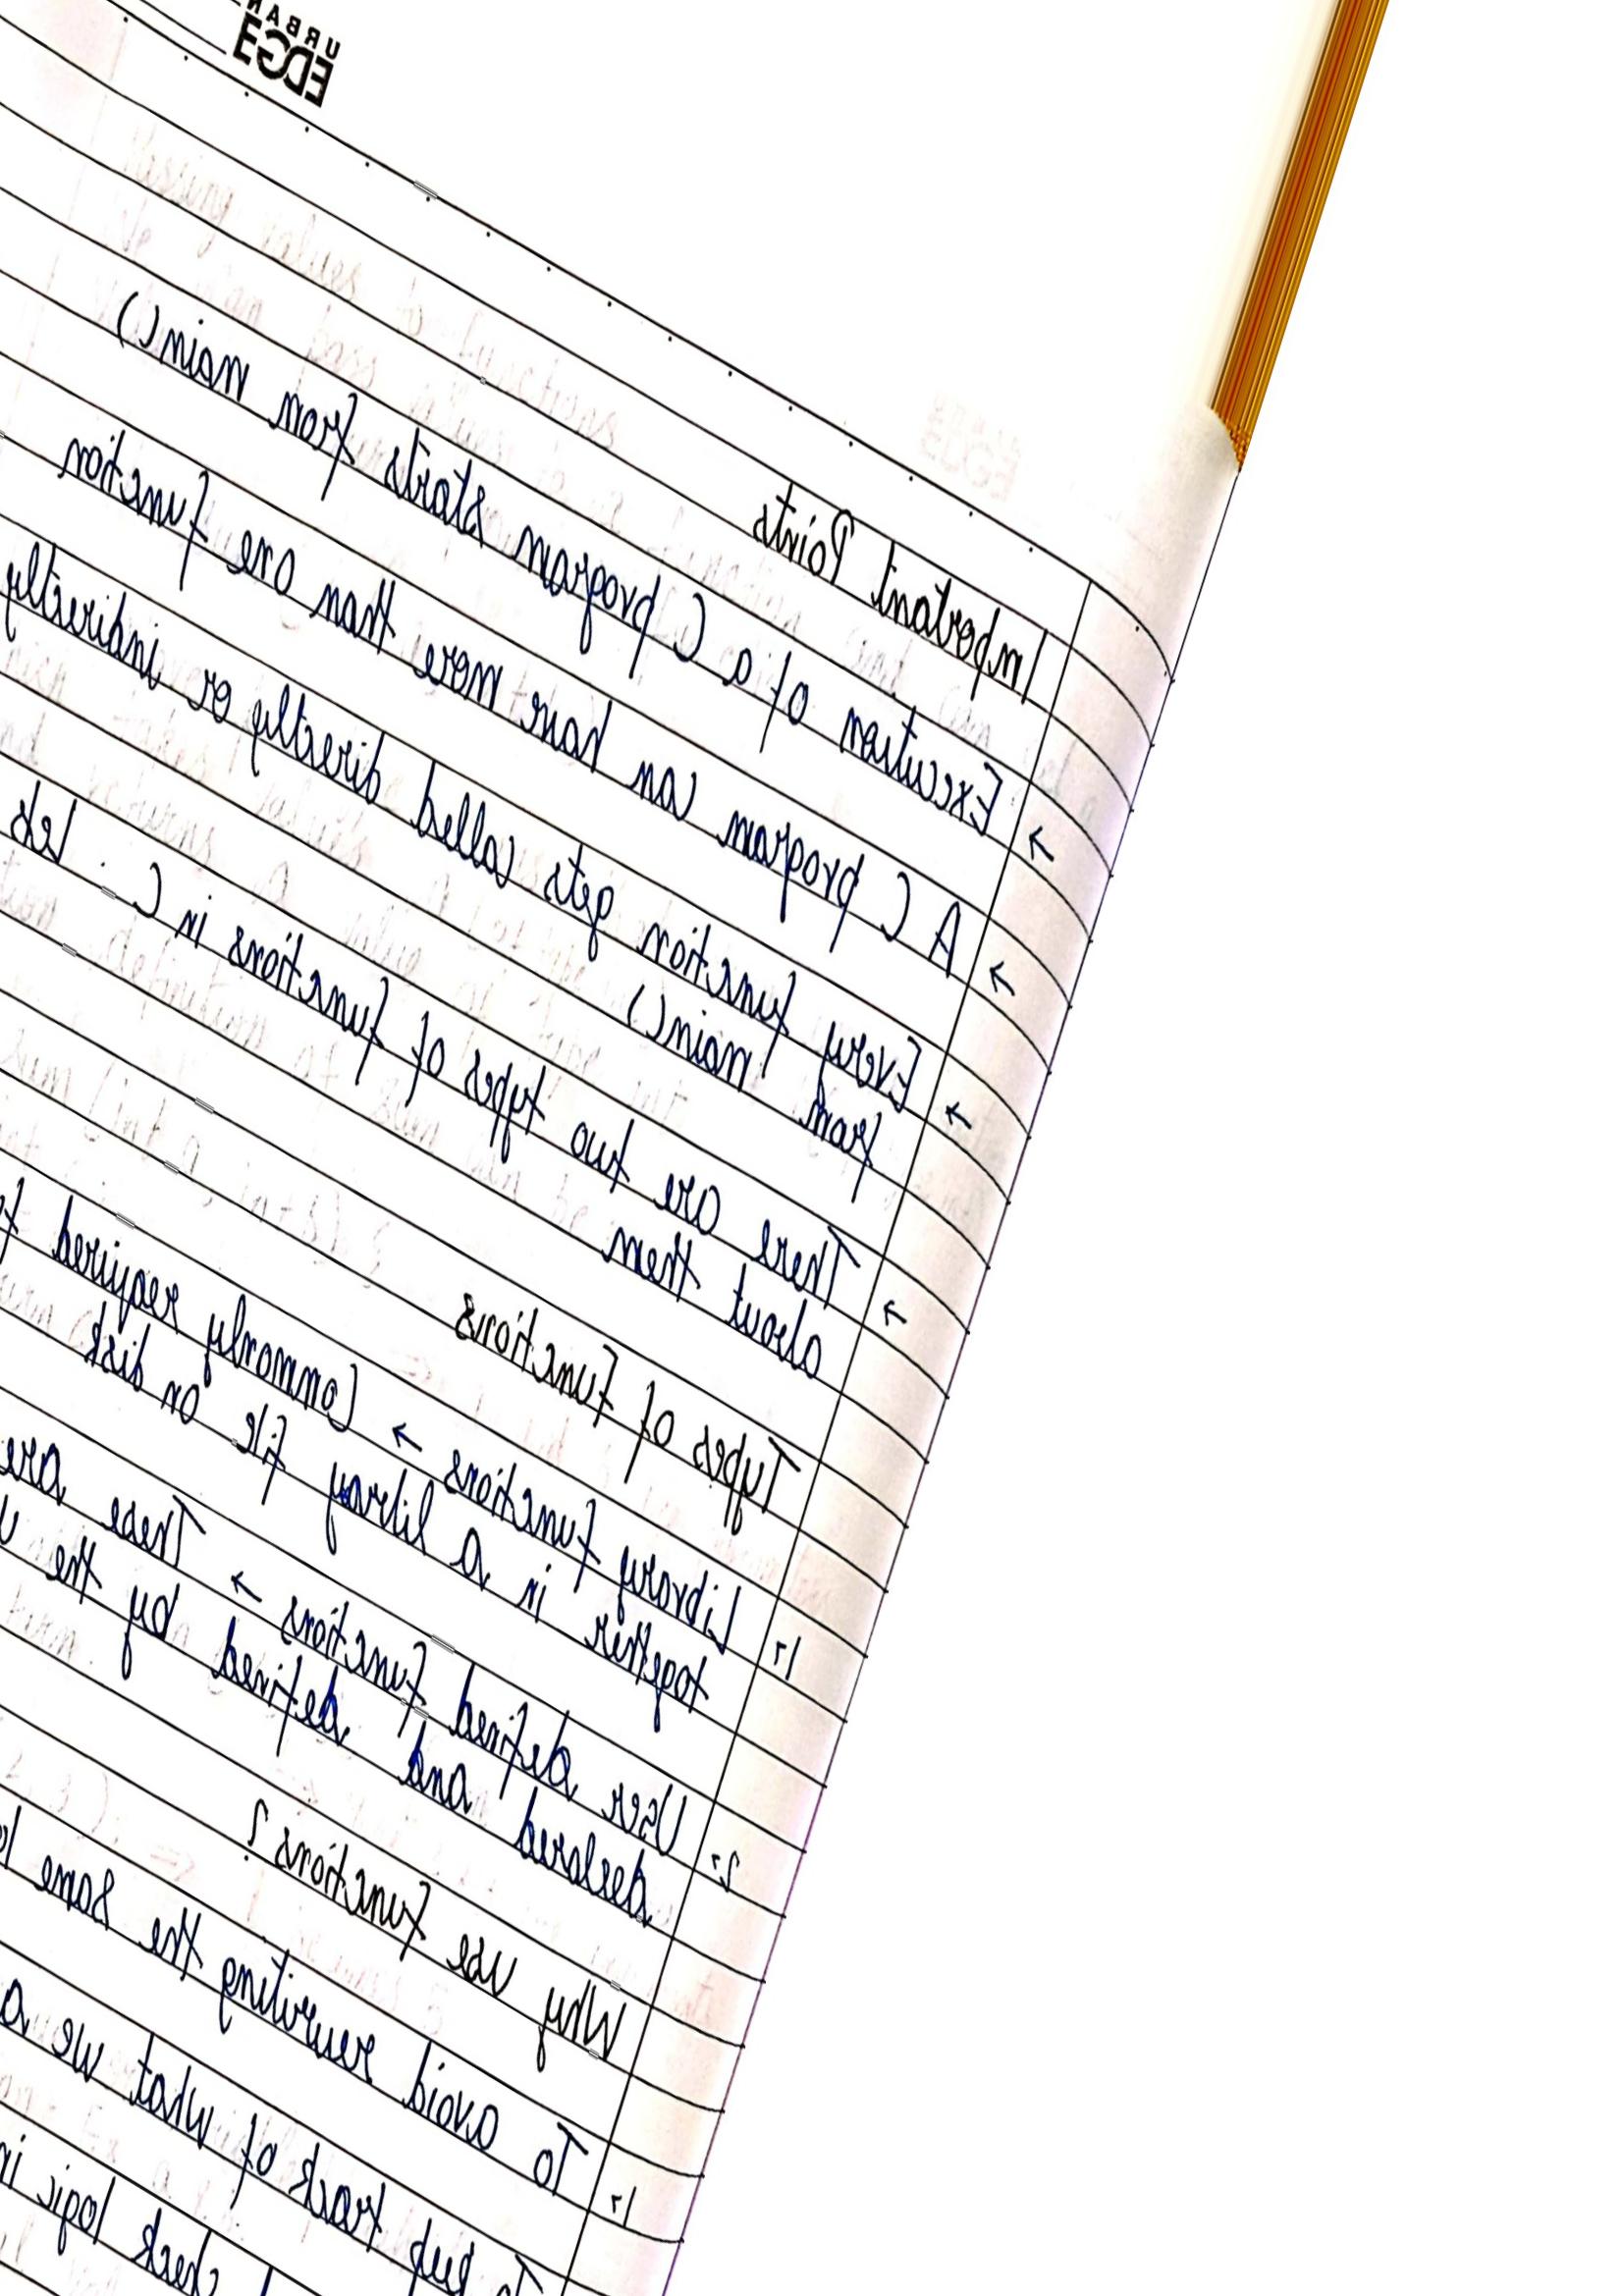 URBAN
EDGE
Important Points
→ Execution of a C program starts from main()
→ A C program can have more than one function
→ Every function gets called directly or indirectly
from main()
→ There are two types of functions in C. Lets
about them
Types of functions
1. Library functions → Commonly required
together in a library file on disk
2. User defined functions → These are
declared and defined by the
Why use functions?
1. To avoid rewriting the same
To keep track of what we
check logic in